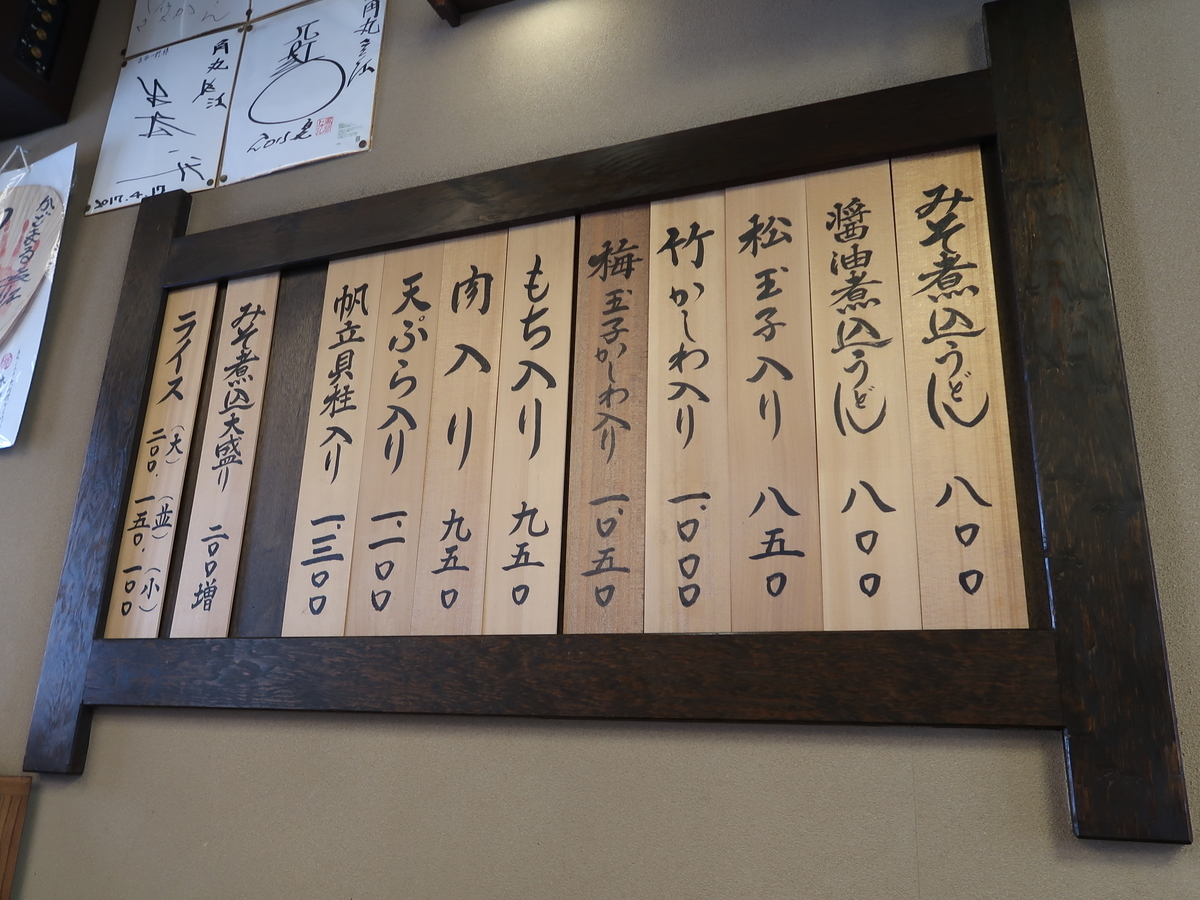 みそ煮込うどん 八〇〇
醤油煮込うどん 八〇〇
松 玉子入り 八五〇
竹 かしわ入り 一、〇〇〇
梅 玉子かしわ入り 一、〇五〇
もち入り 九五〇
肉入り 九五〇
天ぷら入り 一、一〇〇
帆立貝柱入り 一、三〇〇
みそ煮込大盛り 二〇〇増
ライス (大)二〇〇. (並)一五〇. (小)一〇〇
角丸さん江
角丸さん江
2017.4.17